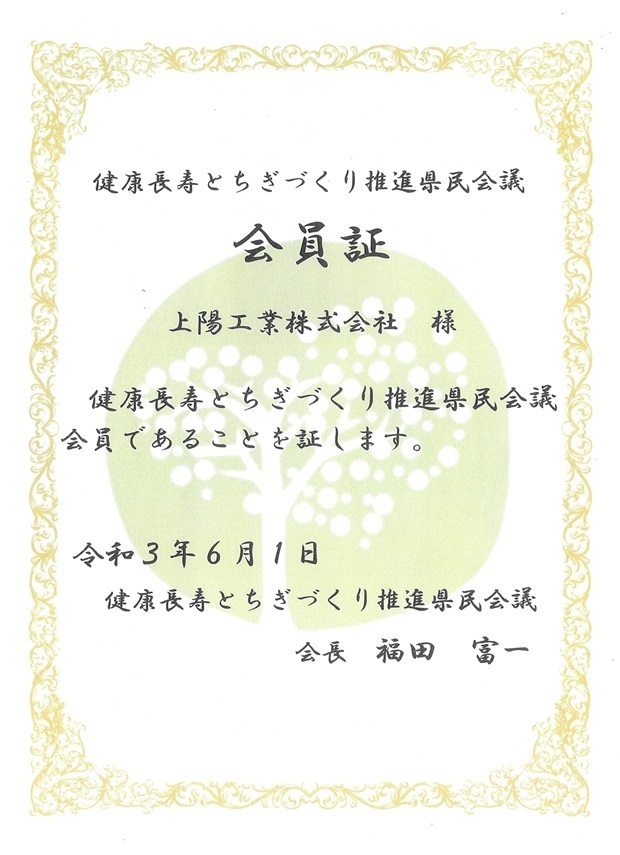 健康長寿とちぎづくり推進県民会議
会員証
上陽工業株式会社　様
健康長寿とちぎづくり推進県民会議
会員であることを証します。
令和３年６月１日
健康長寿とちぎづくり推進県民会議
会長　福田　富一